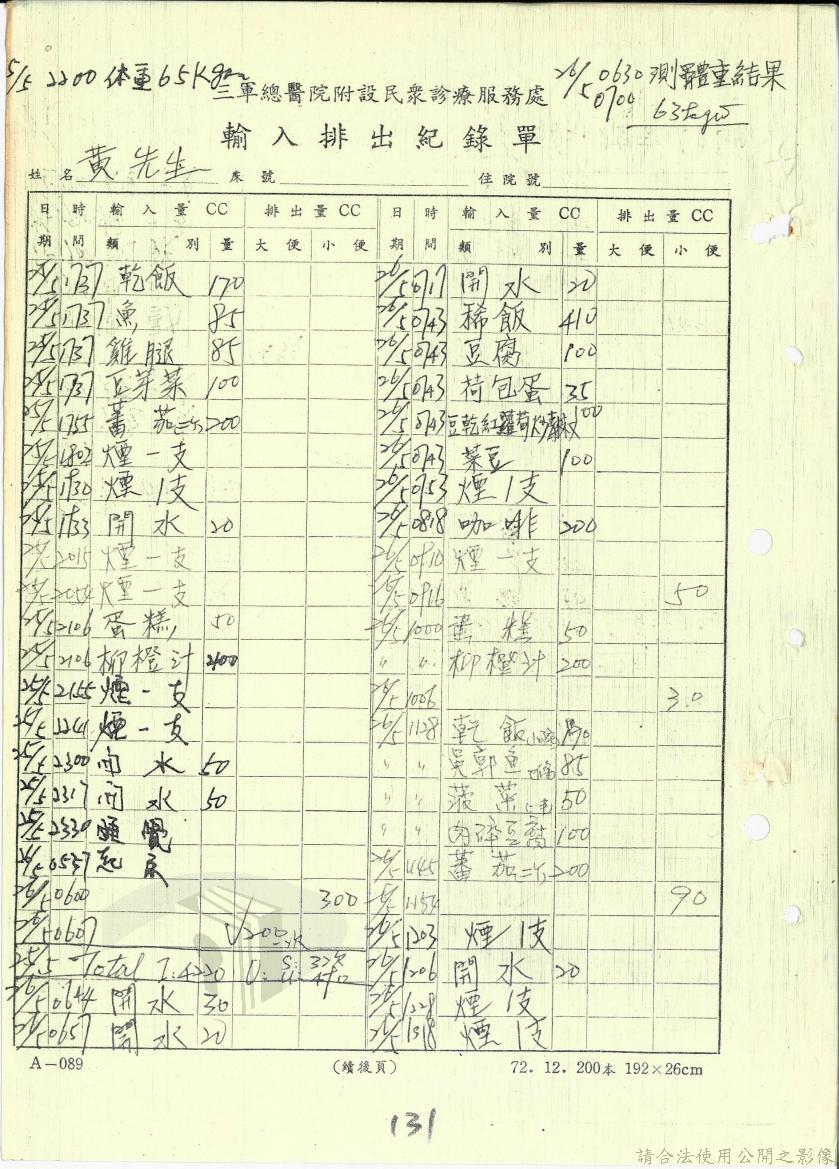 5/5 2200 体重65Kgm
26/5 0630 測體重結果
0700
63kgw
三軍總醫院附設民衆診療服務處
輸入排出紀錄單
姓名 黃先生 床號 住院號
日期 時間 輸入量CC 類別 量 排出量CC 大便 小便
25/5 1737 乾飯 170
25/5 1737 魚 85
25/5 1737 雞腿 85
25/5 1737 豆芽菜 100
25/5 1755 蕃茄 200
25/5 1802 煙一支
25/5 1830 煙1支
25/5 1833 開水 20
25/5 2015 煙一支
25/5 2054 煙一支
25/5 2106 蛋糕 50
25/5 2106 柳橙汁 200
25/5 2155 煙一支
25/5 2241 煙一支
25/5 2300 開水 50
25/5 2317 開水 50
25/5 2330 睡覺
26/5 0537 起床
26/5 0600 300
26/5 0607 √200
25/5 Total I:4220 O: S: 3次 U:
26/5 0644 開水 30
26/5 0657 開水 20
日期 時間 輸入量CC 類別 量 排出量CC 大便 小便
26/5 0717 開水 20
26/5 0743 稀飯 410
26/5 0743 豆腐 100
26/5 0743 荷包蛋 35
26/5 0743 豆乾紅蘿蔔炒 100
26/5 0743 菜豆 100
26/5 0753 煙1支
26/5 0818 咖啡 200
26/5 0910 煙一支
26/5 0916 50
26/5 1000 蛋糕 50
〃 〃 柳橙汁 200
26/5 1006 30
26/5 1128 乾飯 170
〃 〃 吳郭魚 85
〃 〃 菠菜 50
〃 〃 肉碎豆腐 100
26/5 1145 蕃茄 200
26/5 1154 90
26/5 1203 煙1支
26/5 1206 開水 20
26/5 1228 煙1支
26/5 1318 煙1支
A－089 (續後頁) 72. 12. 200本 192×26cm
131
請合法使用公開之影像